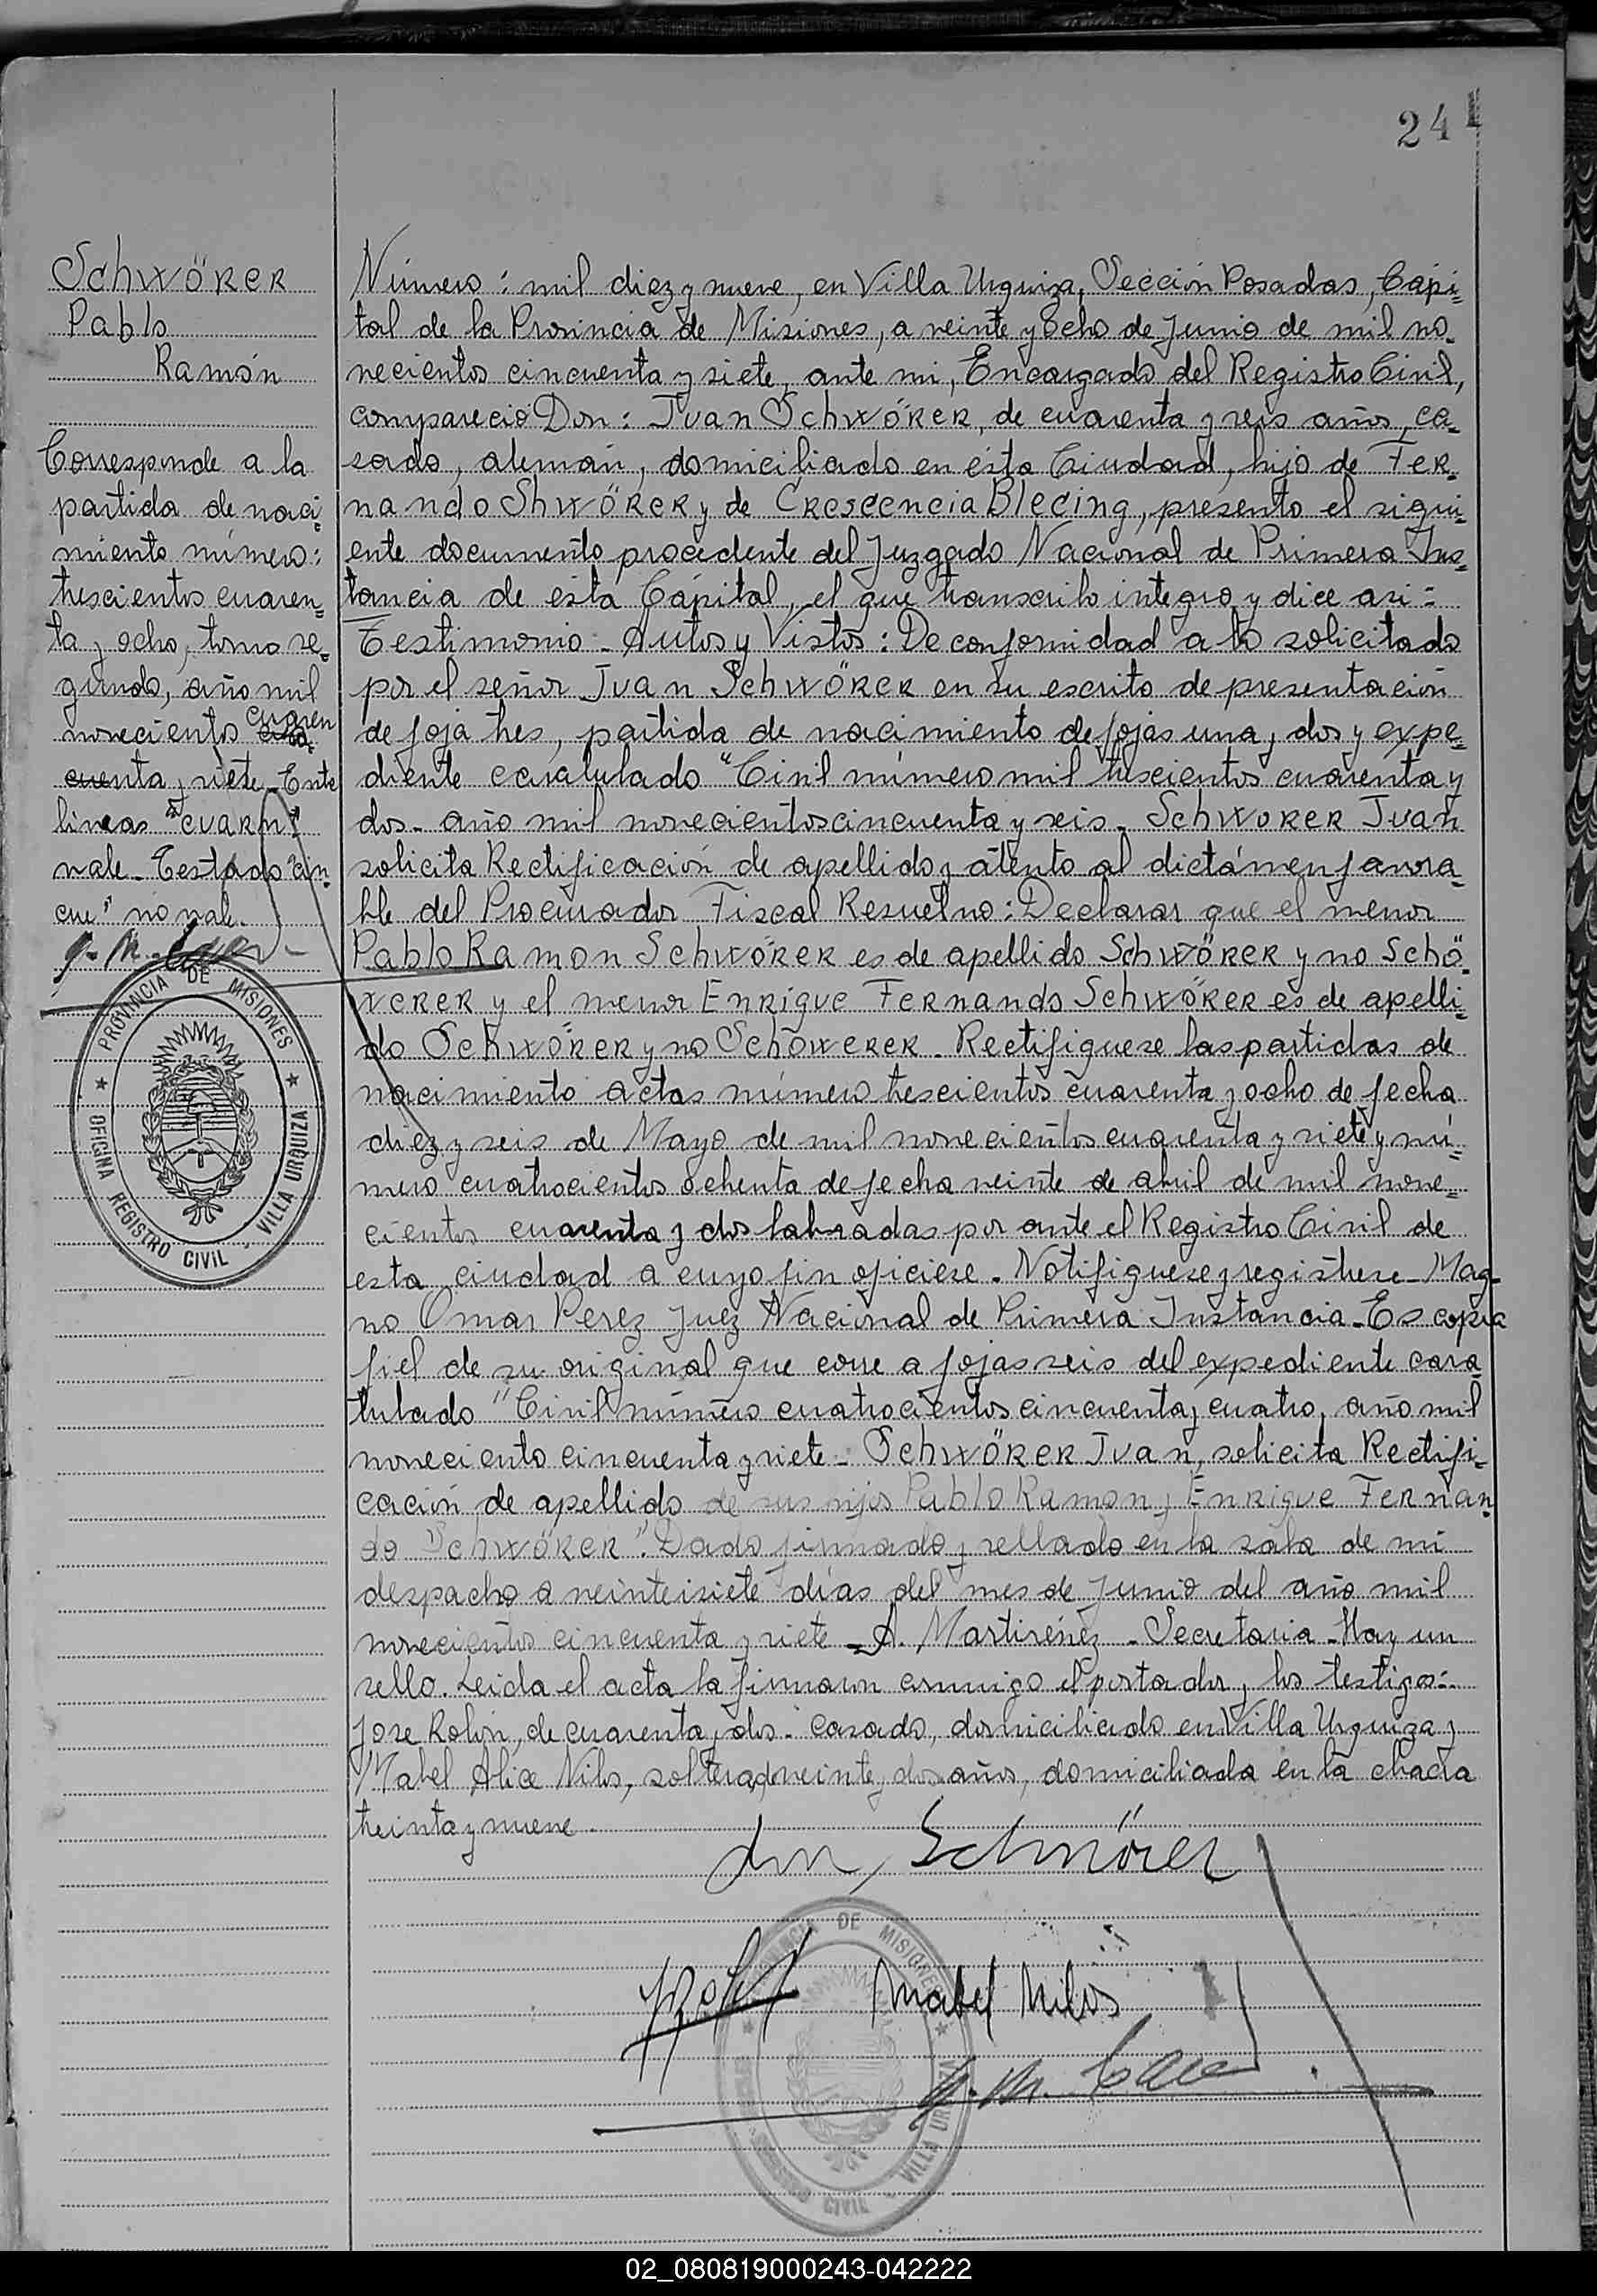 241
Schwörer
Pablo
Ramón
Corresponde a la
partida de naci=
miento número:
trescientos cuaren=
ta y ocho, tomo se=
gundo, año mil
novecientos cuaren
cuenta y siete. Entre
lineas "cuaren"
vale. Testado "cin
cue" no vale.
PROVINCIA DE MISIONES
OFICINA REGISTRO CIVIL - VILLA URQUIZA
Número: mil diez y nueve, en Villa Urquiza, Sección Posadas, Capi=
tal de la Provincia de Misiones, a veinte y ocho de Junio de mil no=
vecientos cincuenta y siete, ante mi, Encargado del Registro Civil,
compareció Don: Juan Schwörer, de cuarenta y seis años, ca=
sado, alemán, domiciliado en ésta Ciudad, hijo de Fer=
nando Shwörer y de Crescencia Blecing, presento el sigui=
ente documento procedente del Juzgado Nacional de Primera Ins=
tancia de ésta Cápital, el que transcribo integro y dice asi:
Testimonio - Autos y Vistos: De conformidad a lo solicitado
por el señor Juan Schwörer en su escrito de presentación
de foja tres, partida de nacimiento de fojas una y dos y expe=
diente caratulado "Civil número mil trescientos cuarenta y
dos - año mil novecientos cincuenta y seis - Schworer Juan
solicita Rectificación de apellido y atento al dictámen favora=
ble del Procurador Fiscal Resuelvo: Declarar que el menor
Pablo Ramon Schwörer es de apellido Schwörer y no Schö=
werer y el menor Enrique Fernando Schwörer es de apelli=
do Schwörer y no Schöwerer. Rectifiquese las partidas de
nacimiento actas número trescientos cuarenta y ocho de fecha
diez y seis de Mayo de mil novecientos cuarenta y siete y nú=
mero cuatrocientos ochenta de fecha veinte de abril de mil nove=
cientos cuarenta y dos labradas por ante el Registro Civil de
esta ciudad a cuyo fin oficiese. Notifiquese y registrese - Mag=
no Omar Perez Juez Nacional de Primera Instancia - Es copia
fiel de su original que corre a fojas seis del expediente cara
tulado "Civil número cuatrocientos cincuenta y cuatro, año mil
noveciento cincuenta y siete - Schwörer Juan, solicita Rectifi=
cación de apellido de sus hijos Pablo Ramon y Enrique Fernan
do Schwörer". Dado firmado y sellado en la sala de mi
despacho a veintisiete días del mes de Junio del año mil
novecientos cincuenta y siete - A. Martirénez - Secretaria - Hay un
sello. Leida el acta la firmaron conmigo el portador y los testigos:
Jose Rolón, de cuarenta y dos - casado, domiciliado en Villa Urquiza y
Mabel Alice Nilos, soltera, de veinte y dos años, domiciliada en la chacra
treinta y nueve.
Schwörer
Mabel Nilos
PROVINCIA DE MISIONES
CIVIL VILLA UR
02_080819000243-042222